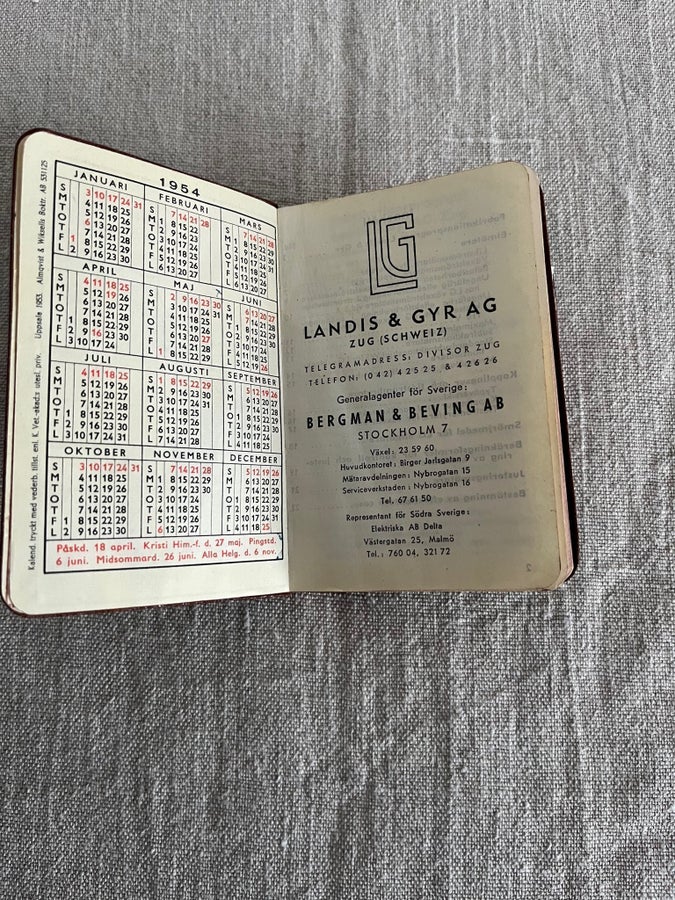 1954
JANUARI FEBRUARI MARS
S 3 10 17 24 31 S 7 14 21 28 S 7 14 21 28
M 4 11 18 25 M 1 8 15 22 M 1 8 15 22 29
T 5 12 19 26 T 2 9 16 23 T 2 9 16 23 30
O 6 13 20 27 O 3 10 17 24 O 3 10 17 24 31
T 7 14 21 28 T 4 11 18 25 T 4 11 18 25
F 1 8 15 22 29 F 5 12 19 26 F 5 12 19 26
L 2 9 16 23 30 L 6 13 20 27 L 6 13 20 27
APRIL MAJ JUNI
S 4 11 18 25 S 2 9 16 23 30 S 6 13 20 27
M 5 12 19 26 M 3 10 17 24 31 M 7 14 21 28
T 6 13 20 27 T 4 11 18 25 T 1 8 15 22 29
O 7 14 21 28 O 5 12 19 26 O 2 9 16 23 30
T 1 8 15 22 29 T 6 13 20 27 T 3 10 17 24
F 2 9 16 23 30 F 7 14 21 28 F 4 11 18 25
L 3 10 17 24 L 1 8 15 22 29 L 5 12 19 26
JULI AUGUSTI SEPTEMBER
S 4 11 18 25 S 1 8 15 22 29 S 5 12 19 26
M 5 12 19 26 M 2 9 16 23 30 M 6 13 20 27
T 6 13 20 27 T 3 10 17 24 31 T 7 14 21 28
O 7 14 21 28 O 4 11 18 25 O 1 8 15 22 29
T 1 8 15 22 29 T 5 12 19 26 T 2 9 16 23 30
F 2 9 16 23 30 F 6 13 20 27 F 3 10 17 24
L 3 10 17 24 31 L 7 14 21 28 L 4 11 18 25
OKTOBER NOVEMBER DECEMBER
S 3 10 17 24 31 S 7 14 21 28 S 5 12 19 26
M 4 11 18 25 M 1 8 15 22 29 M 6 13 20 27
T 5 12 19 26 T 2 9 16 23 30 T 7 14 21 28
O 6 13 20 27 O 3 10 17 24 O 1 8 15 22 29
T 7 14 21 28 T 4 11 18 25 T 2 9 16 23 30
F 1 8 15 22 29 F 5 12 19 26 F 3 10 17 24 31
L 2 9 16 23 30 L 6 13 20 27 L 4 11 18 25
Påskd. 18 april. Kristi Him.-f. d. 27 maj. Pingstd.
6 juni. Midsommard. 26 juni. Alla Helg. d. 6 nov.
Kalend. tryckt med vederb. tillst. enl. K. Vet.-akad:s utesl. priv. Uppsala 1953. Almqvist & Wiksells Boktr. AB 531125
LG
LANDIS & GYR AG
ZUG (SCHWEIZ)
TELEGRAMADRESS: DIVISOR ZUG
TELEFON: (042) 42525 & 42626
Generalagenter för Sverige:
BERGMAN & BEVING AB
STOCKHOLM 7
Växel: 23 59 60
Huvudkontoret: Birger Jarlsgatan 9
Mätaravdelningen: Nybrogatan 15
Serviceverkstaden: Nybrogatan 16
Tel. 67 61 50
Representant för Södra Sverige:
Elektriska AB Delta
Västergatan 25, Malmö
Tel.: 760 04, 321 72
2